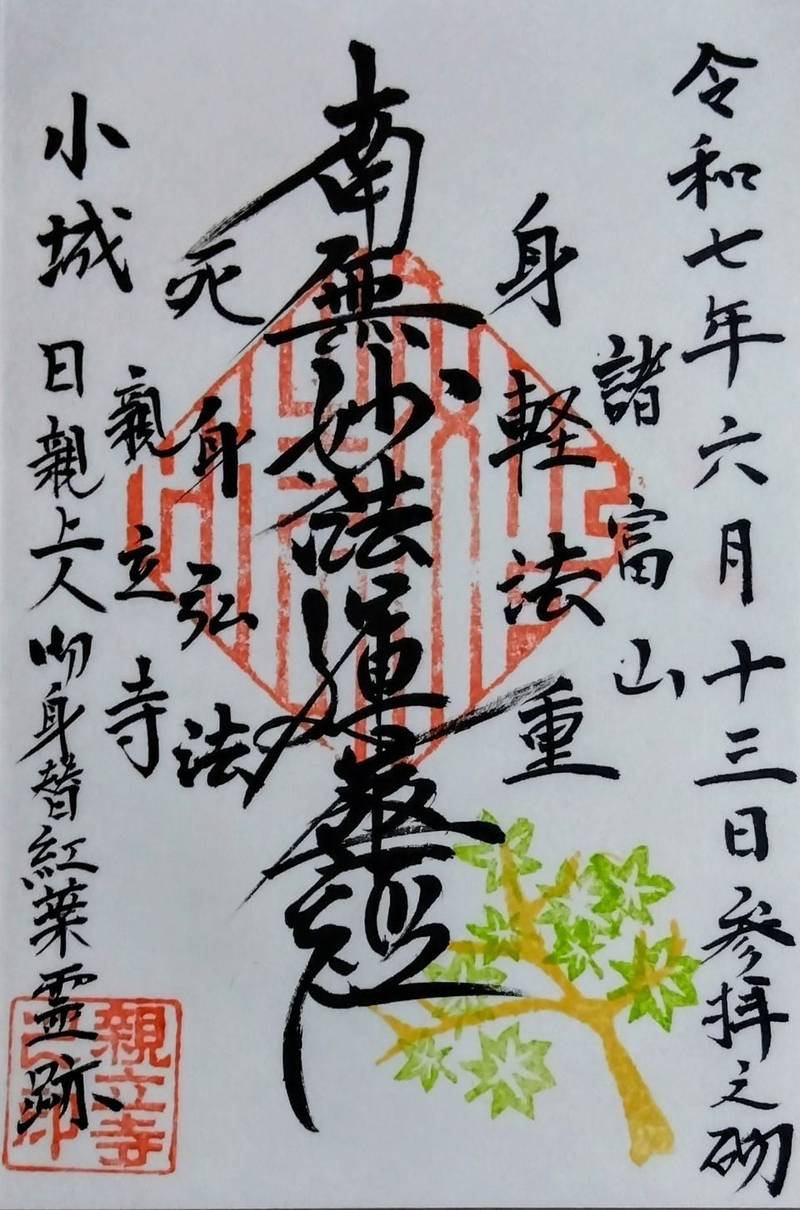 令和七年六月十三日参拝之砌
諸富山
身軽法重
南無妙法蓮華経
死身弘法
親立寺
小城
日親上人御身替紅葉霊跡
親立寺
之印